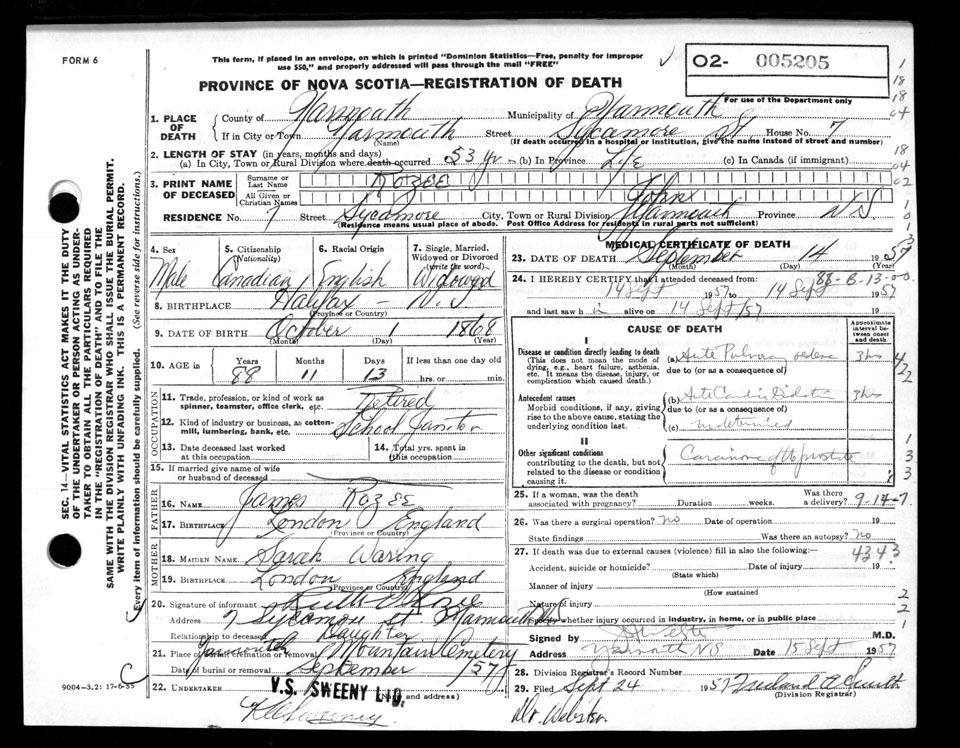 FORM 6
This form, if placed in an envelope, on which is printed "Dominion Statistics—Free, penalty for improper
use $50," and properly addressed will pass through the mail "FREE"
O2- 005205
For use of the Department only
PROVINCE OF NOVA SCOTIA—REGISTRATION OF DEATH
1. PLACE OF DEATH County of Yarmouth Municipality of Yarmouth
If in City or Town Yarmouth Street Sycamore St. House No. 7
(Name) (If death occurred in a hospital or institution, give the name instead of street and number)
2. LENGTH OF STAY (in years, months and days)
(a) In City, Town or Rural Division where death occurred 53 yr (b) In Province Life (c) In Canada (if immigrant)
3. PRINT NAME OF DECEASED Surname or Last Name ROZEE
All Given or Christian Names John
RESIDENCE No. 7 Street Sycamore City, Town or Rural Division Yarmouth Province N.S.
(Residence means usual place of abode. Post Office Address for residents in rural parts not sufficient)
4. Sex 5. Citizenship (Nationality) 6. Racial Origin 7. Single, Married, Widowed or Divorced (write the word)
Male Canadian English Widowed
8. BIRTHPLACE Halifax - N.S
(Province or Country)
9. DATE OF BIRTH October 1 1868
(Month) (Day) (Year)
10. AGE in Years Months Days If less than one day old
88 11 13 hrs. or min.
OCCUPATION
11. Trade, profession, or kind of work as spinner, teamster, office clerk, etc. Retired
12. Kind of industry or business, as cotton-mill, lumbering, bank, etc. School Janitor
13. Date deceased last worked at this occupation 14. Total yrs. spent in this occupation
15. If married give name of wife or husband of deceased
FATHER
16. NAME James ROZEE
17. BIRTHPLACE London England
(Province or Country)
MOTHER
18. MAIDEN NAME Sarah Waring
19. BIRTHPLACE London England
(Province or Country)
20. Signature of informant Ruth Rozee
Address 7 Sycamore St. Yarmouth
Relationship to deceased Daughter
21. Place of burial cremation or removal Mountain Cemetery
Date of burial or removal September /57
22. UNDERTAKER V.S. SWEENY LTD.
(Name and address)
9004—3.2: 17-6-55
MEDICAL CERTIFICATE OF DEATH
23. DATE OF DEATH September 14 1957
(Month) (Day) (Year)
24. I HEREBY CERTIFY that I attended deceased from 88-B-13-00
14 Sept 1957 to 14 Sept 1957
and last saw h im alive on 14 Sept/57 19
CAUSE OF DEATH
Approximate interval between onset and death
I
Disease or condition directly leading to death (a) Acute Pulmonary oedema 3 hrs
(This does not mean the mode of dying, e.g., heart failure, asthenia, etc. It means the disease, injury, or complication which caused death.)
due to (or as a consequence of)
Antecedent causes (b) Acute Cardiac Dilatation 3 hrs
Morbid conditions, if any, giving rise to the above cause, stating the underlying condition last.
due to (or as a consequence of)
(c) undetermined
II
Other significant conditions Carcinoma of the prostate ?
contributing to the death, but not related to the disease or condition causing it.
25. If a woman, was the death associated with pregnancy? Duration weeks. Was there a delivery? 9-14-7
26. Was there a surgical operation? no Date of operation 19
State findings Was there an autopsy? no
27. If death was due to external causes (violence) fill in also the following:— 4343
Accident, suicide or homicide? Date of injury 19
(State which)
Manner of injury
(How sustained)
Nature of injury
Specify whether injury occurred in industry, in home, or in public place
Signed by M.D.
Address Yarmouth N.S Date 15 Sept 1957
28. Division Registrar's Record Number
29. Filed Sept 24 1957
(Division Registrar)
Dr. Webster
SEC. 14—VITAL STATISTICS ACT MAKES IT THE DUTY
OF THE UNDERTAKER OR PERSON ACTING AS UNDER-
TAKER TO OBTAIN ALL THE PARTICULARS REQUIRED
IN THE "REGISTRATION OF DEATH" AND TO FILE THE
SAME WITH THE DIVISION REGISTRAR WHO SHALL ISSUE THE BURIAL PERMIT.
WRITE PLAINLY WITH UNFADING INK. THIS IS A PERMANENT RECORD.
Every item of information should be carefully supplied. (See reverse side for instructions.)